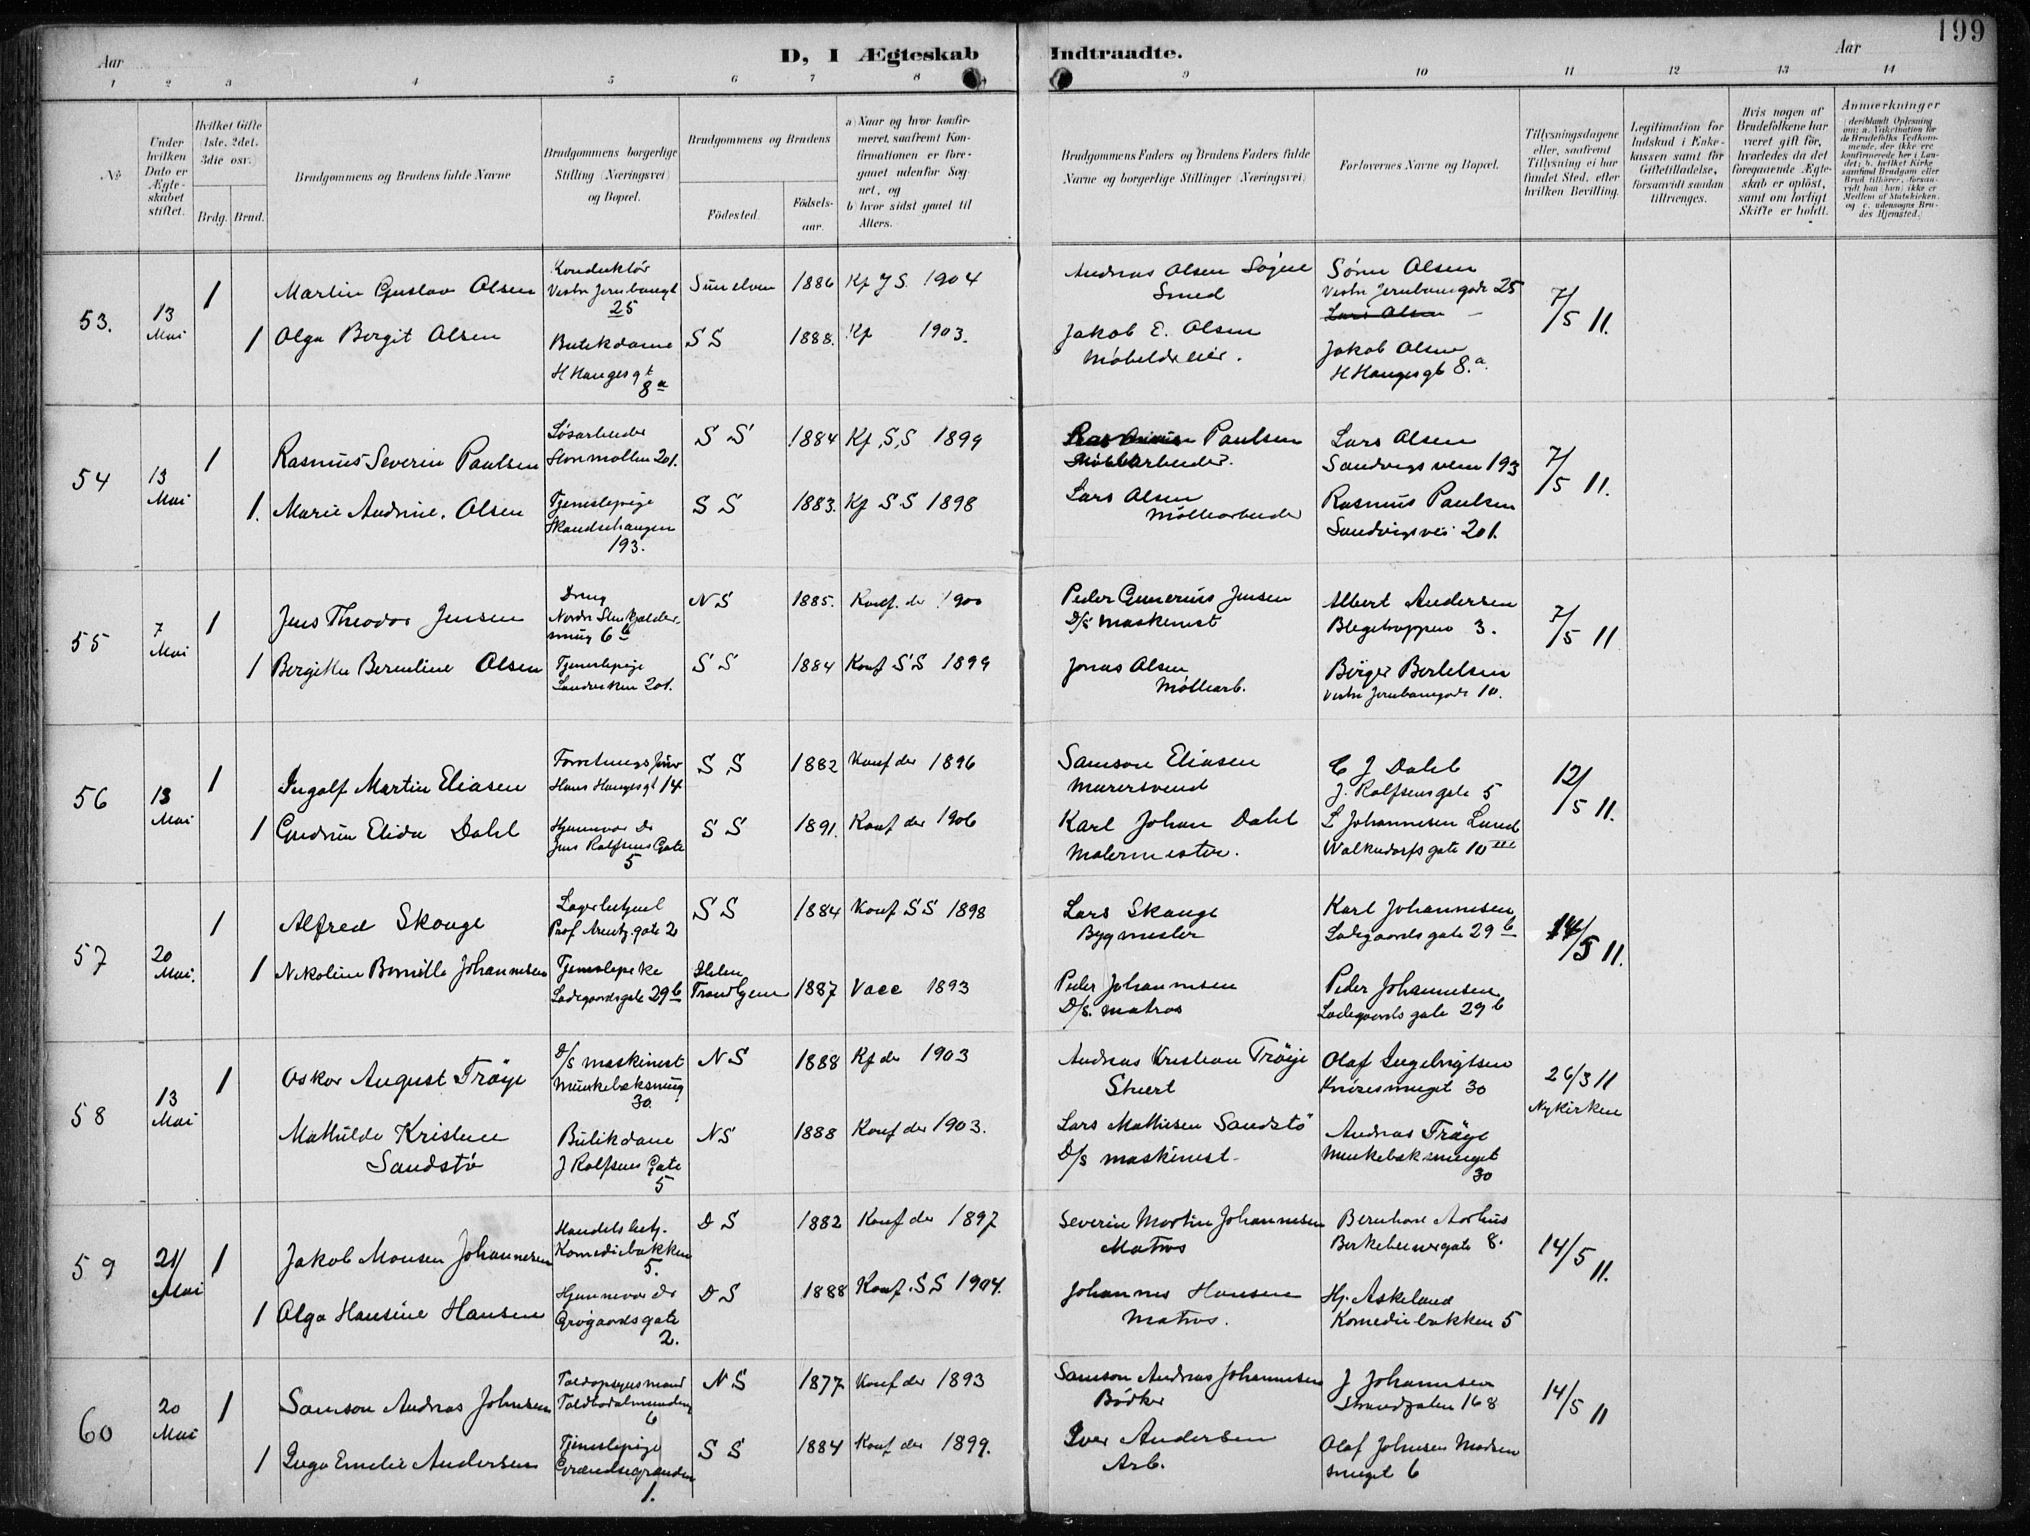 199
Aar
D, I Ægteskab Indtraadte.
Aar
1 2 3 4 5 6 7 8 9 10 11 12 13 14
No
Under hvilken Dato er Ægteskabet stiftet.
Hvilket Gifte (1ste, 2det, 3die osv.)
Brdg. Brud.
Brudgommens og Brudens fulde Navne
Brudgommens borgerlige Stilling (Næringsvei) og Bopæl.
Brudgommens og Brudens
Födested.
Födsels-aar.
a) Naar og hvor konfirmeret, saafremt Konfirmationen er foregaaet udenfor Sognet, og
b) hvor sidst gaaet til Alters.
Brudgommens Faders og Brudens Faders fulde Navne og borgerlige Stillinger (Næringsvei)
Forlovernes Navne og Bopæl.
Tillysningsdagene eller, saafremt Tillysning ei har fundet Sted, efter hvilken Bevilling.
Legitimation for Indskud i Enkekassen samt for Giftetilladelse, forsaavidt saadan tiltrænges.
Hvis nogen af Brudefolkene har været gift för, hvorledes da det foregaaende Ægteskab er oplöst, samt om lovligt Skifte er holdt.
Anmerkninger
53.
13 Mai
1 Martin Gustav Olsen
Konduktör
Vestre Jernbanegt
25
Sunelven 1886 Kf JS 1904
Andreas Olsen Søgne
Smed
Sörine Olsen
Vestre Jernbanegade 25
Lars Olsen
7/5 11.
1 Olga Bergit Olsen
Butikdame
H Haugesgt
8a
SS 1888. Kf 1903.
Jakob E. Olsen
Møbeldreier.
Jakob Olsen
H Haugesgt 8.a.
54
13 Mai
1 Rasmus Severin Paulsen
Løsarbeider
Storemøllen 201.
SS 1884 Kf SS 1899
Paulsen
Møllearbeider.
Lars Olsen
Sandvigsveien 193
7/5 11.
1. Marie Andrine. Olsen
Tjenestepige
Skandsehaugen
193.
SS 1883. Kf SS 1898
Lars Olsen
Møllearbeider
Rasmus Paulsen
Sandvigsvei 201.
55
7 Mai
1 Jens Theodor Jensen
Dreng
Nordre Stenkjelder-
smug 6b
NS 1885. Konf. der 1900
Peder Gunerius Jensen
D/s maskinist
Albert Andersen
Blegetrappen 3.
7/5 11
1 Bergitte Berentine Olsen
Tjenestepige
Sandviken 201.
SS 1884 Konf SS 1899
Jonas Olsen
Møllearb.
Börger Bertelsen
Vestre Jernbanegade 10.
56
13 Mai
1 Ingolf Martin Eliasen
Hans Haugesgt 14
SS 1882 Konf der 1896
Samson Eliasen
Murersvend
C J Dahl
J. Rolfsensgate 5
12/5 11.
1 Gudrun Elida Dahl
Hjemmevær. Dr
Jens Rolfsens Gate
5
SS 1891. Konf der 1906
Karl Johan Dahl
Malermester.
L Johannesen Lund
Walkendorfsgate 10 III
57
20 Mai.
1 Alfred Skauge
Lagerbetjent
Prof Arentz gate 2
SS 1884 Konf SS 1898
Lars Skauge
Bygmester
Karl Johannesen
Ladegaardsgate 29b
14/5 11.
1 Nikoline Bernille Johannesen
Ladegaardsgate 29b
Trondhjem 1887 Vacc 1893
Peder Johannesen
D/s. matros
Peder Johannesen
Ladegaardsgate 29b
58
13 Mai
1 Oskar August Tröye
D/s maskinist
Munkebæksmug
30.
NS 1888 Kf der 1903
Andreas Kristian Tröye
Stuert
Olaf Ingebrigtsen
Knösesmuget 30
26/3 11
Nykirken
Mathilde Kristine
Sandstö
Butikdame
J Rolfsens Gate
5
NS 1888 Konf der 1903.
Lars Mathiesen Sandstö
D/s maskinist
Andreas Tröye
Munkebæksmuget
30
59
21/ Mai
1 Jakob Monsen Johannesen
Handelsbetj.
Komediebakken
5.
DS 1882 Konf der 1897
Severin Martin Johannesen
Matros
Bernhard Aarhus
Birkebeinergate 8.
14/5 11.
1 Olga Hansine Hansen
Hjemmevær. Dr
Grögaardsgate
2.
DS 1888 Konf. SS 1904.
Johannes Hansen
Matros.
Hj. Askeland
Komediebakken 5
60
20 Mai
1 Samson Andreas Johnsen
Toldopsynsmand
Toldbodalmending
6
NS 1877 Konf der 1893
Samson Andreas Johannesen
Bödker
J Johannesen
Strandgaten 168
14/5 11
1 Inga Emelie Andersen
Tjenestepige
Grændsegrænden
1.
SS 1884 Konf der 1899.
Iver Andersen
Arb.
Olaf Johnsen Madsen
smuget 6